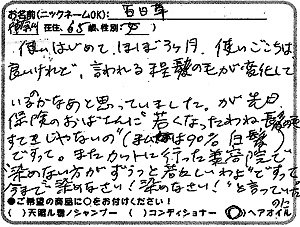 お名前(ニックネームOK): 百日草
在住、65歳、性別: 女
使いはじめて、ほぼ3ヶ月、使いごこちは
良いけれど、言われる程髪の毛が変化して
いるのかなあと思っていました。が先日
保険のおばさんに"若くなったわね 髪の毛
すてきじゃないの"(まゆは90%白髪)
ですって。またカットに行った美容院で
"染めない方がずうっと若々しいわよ"ですって。
今まで"染めなさい！染めなさい！"と言っていた
のに
●ご愛用の商品に○をお付けください！
( )天照ル碧ノシャンプー ( )コンディショナー (○)ヘアオイル